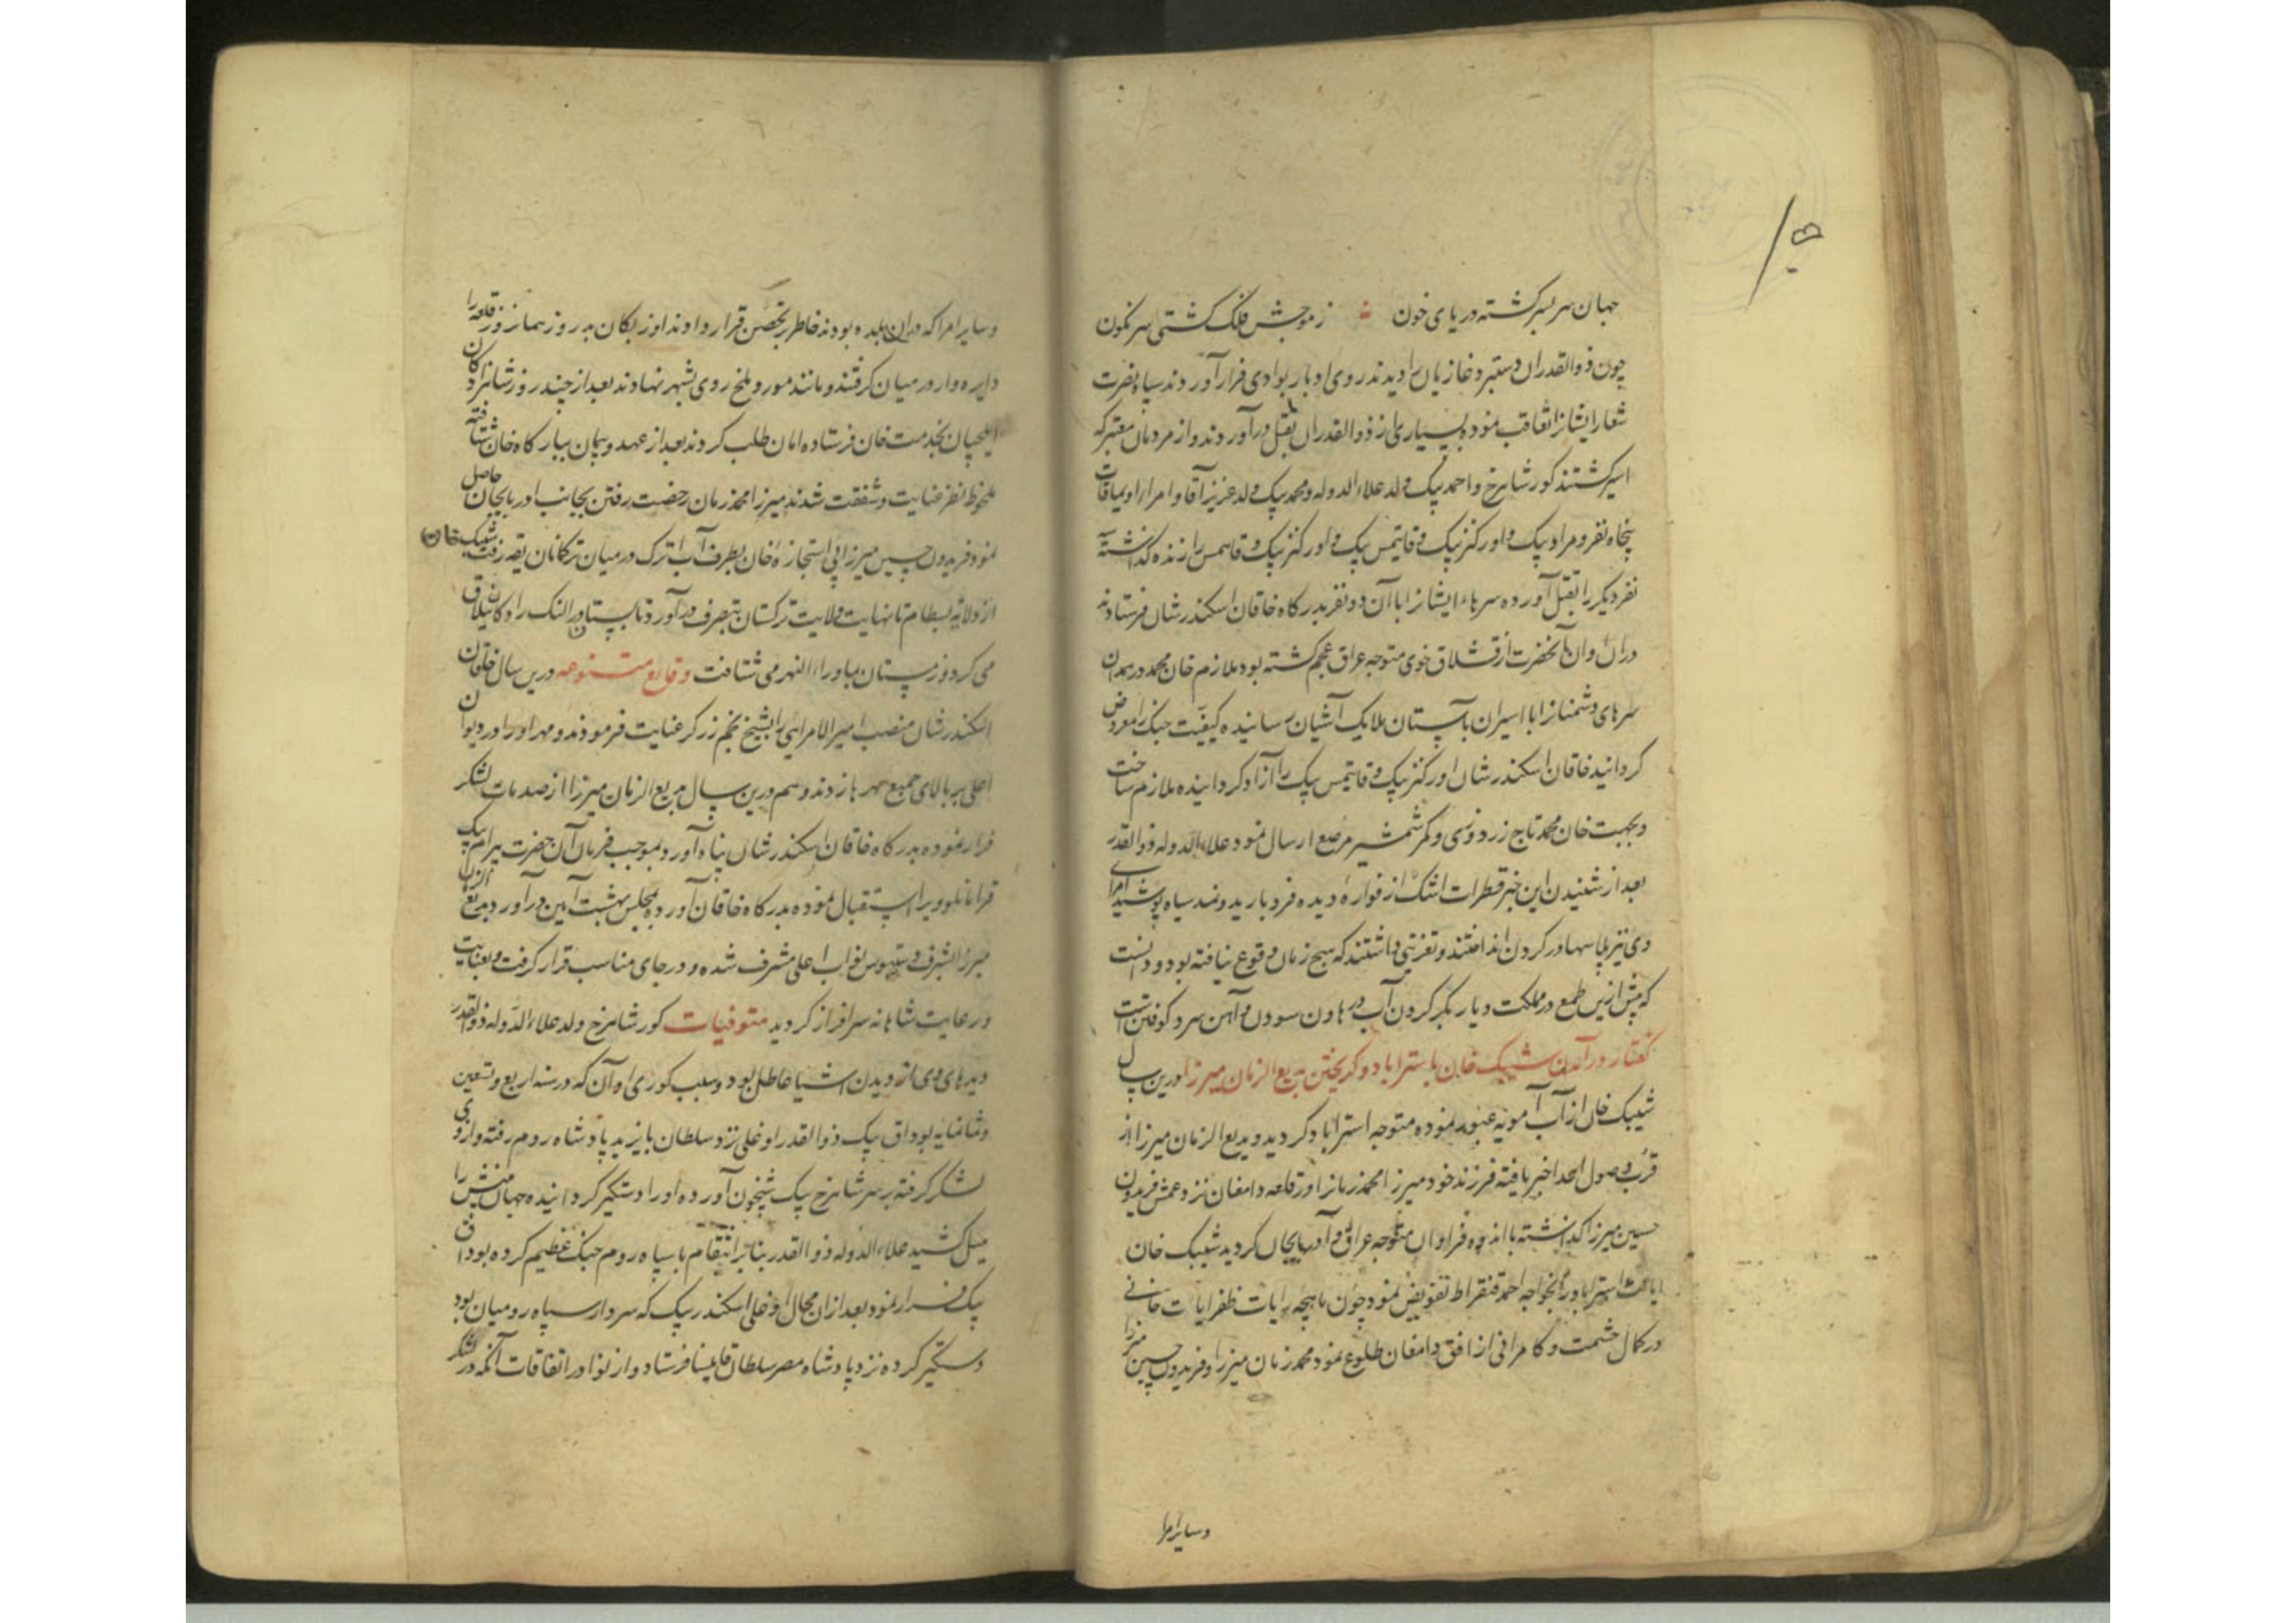 جهان سر بسر کشته دریای خون ز موجش فلک کشتی سرنکون
چون ذوالقدران دستبرد غازیان را دیدند روی ادبار بوادی فرار آوردند سپاه نصرت
شعار ایشانرا تعاقب نموده بسیاری از ذوالقدران بقتل درآوردند و از مردمان معتبر که
اسیر کشتند کور شاهرخ و احمد بیک ولد علاء الدوله و محمد بیک ولد عزیز آقا و امراء اویماقات
پنجاه نفر و مراد بیک و اورکنز بیک و قایتمس بیک و اورکنز بیک و قایتمس را زنده کذاشته
نفر دیگر را بقتل آورده سرهاء ایشانرا با آن دو نفر بدرکاه خاقان اسکندر شان فرستادند
دران اوان آنحضرت از قشلاق خوی متوجه عراق عجم کشته بود ملازم خان محمد در همدان
سرهای دشمنانرا با اسیران بآستان ملایک آشیان رسانیده کیفیت جنک را معروض
کردانید خاقان اسکندر شان اورکنز بیک و قایتمس بیک را آزاد کردانیده ملازم ساخت
و بجهت خان محمد تاج زردوزی و کمر شمشیر مرصع ارسال نمود علاء الدوله ذوالقدر
بعد از شنیدن این خبر قطرات اشک از فوارهٔ دیده فرو بارید و نمد سیاه پوشید امرای
وی نیز پلاسها در کردن انداختند و تعزیتی داشتند که هیچ زمان وقوع نیافته بود و دانست
که پیش ازین طمع در مملکت دیار بکر کردن آب در هاون سودن و آهن سرد کوفتن است
کفتار در آمدن شیبک خان باستراباد و کریختن بدیع الزمان میرزا درین سال
شیبک خان از آب آمویه عبور نموده متوجه استراباد کردید و بدیع الزمان میرزا از
قرب وصول اعدا خبر یافته فرزند خود میرزا محمد زمانرا در قلعه دامغان نزد عمش فریدون
حسین میرزا کذاشته با اندوه فراوان متوجه عراق و آذربایجان کردید شیبک خان
ایالت استراباد را بخواجه احمد قنقراط تفویض نمود چون ماهچه رایات ظفر ایات خانی
در کمال حشمت و کامرانی از افق دامغان طلوع نمود محمد زمان میرزا و فریدون حسین میرزا
وسایر امرا
وسایر امرا که دران بلده بودند خاطر بر تحصن قرار دادند اوزبکان بد روز همان روز قلعه را
دایره وار در میان کرفتند و مانند مور و ملخ روی بشهر نهادند بعد از چند روز شاهزادکان
ایلچیان بخدمت خان فرستاده امان طلب کردند بعد از عهد و پیمان ببارکاه خان شتافته
ملحوظ نظر عنایت و شفقت شدند میرزا محمد زمان رخصت رفتن بجانب اذربایجان حاصل
نمود و فریدون حسین میرزا بی استجازهٔ خان بطرف آب اترک در میان ترکمانان یقه رفت شیبک خان
از ولایه بسطام تا نهایت ولایت ترکستان بتصرف درآورد تابستان در النک رادکان ییلاق
می کرد و زمستان بماوراء النهر می شتافت وقایع متنوعه درین سال خاقان
اسکندر شان منصب امیر الامرایی را بشیخ نجم زرکر عنایت فرمودند و مهر او را در دیوان
اعلی بر بالای جمیع مهرها زدند و هم درین سال بدیع الزمان میرزا از صدمات لشکر
فرار نموده بدرکاه خاقان اسکندر شان پناه آورد بموجب فرمان آن حضرت بیرام بیک
قرامانلو ویرا استقبال نموده بدرکاه خاقان آورده بمجلس بهشت آیین درآورد بدیع الزمان
میرزا بشرف دستبوس نواب اعلی مشرف شده و در جای مناسب قرار کرفت و بعنایت
و رعایت شاهانه سرافراز کردید متوفیات کور شاهرخ ولد علاء الدوله ذوالقدر
دیدهای وی از دیدن اشیا عاطل بود و سبب کوری او آن که در سنه اربع و تسعین
وثمانمایه بوداق بیک ذوالقدر اوغلی نزد سلطان بایزید پادشاه روم رفته و از وی
لشکر کرفته بر سر شاهرخ بیک شبخون آورده او را دستکیر کردانیده جهان بینش را
میل کشید علاء الدوله ذوالقدر بنابر انتقام با سپاه روم جنک عظیم کرده بوداق
بیک فرار نمود بعد ازان مجال اوغلی اسکندر بیک که سردار سپاه رومیان بود
دستکیر کرده نزد پادشاه مصر سلطان قایتبا فرستاد و از نوادر اتفاقات آنکه در لشکر